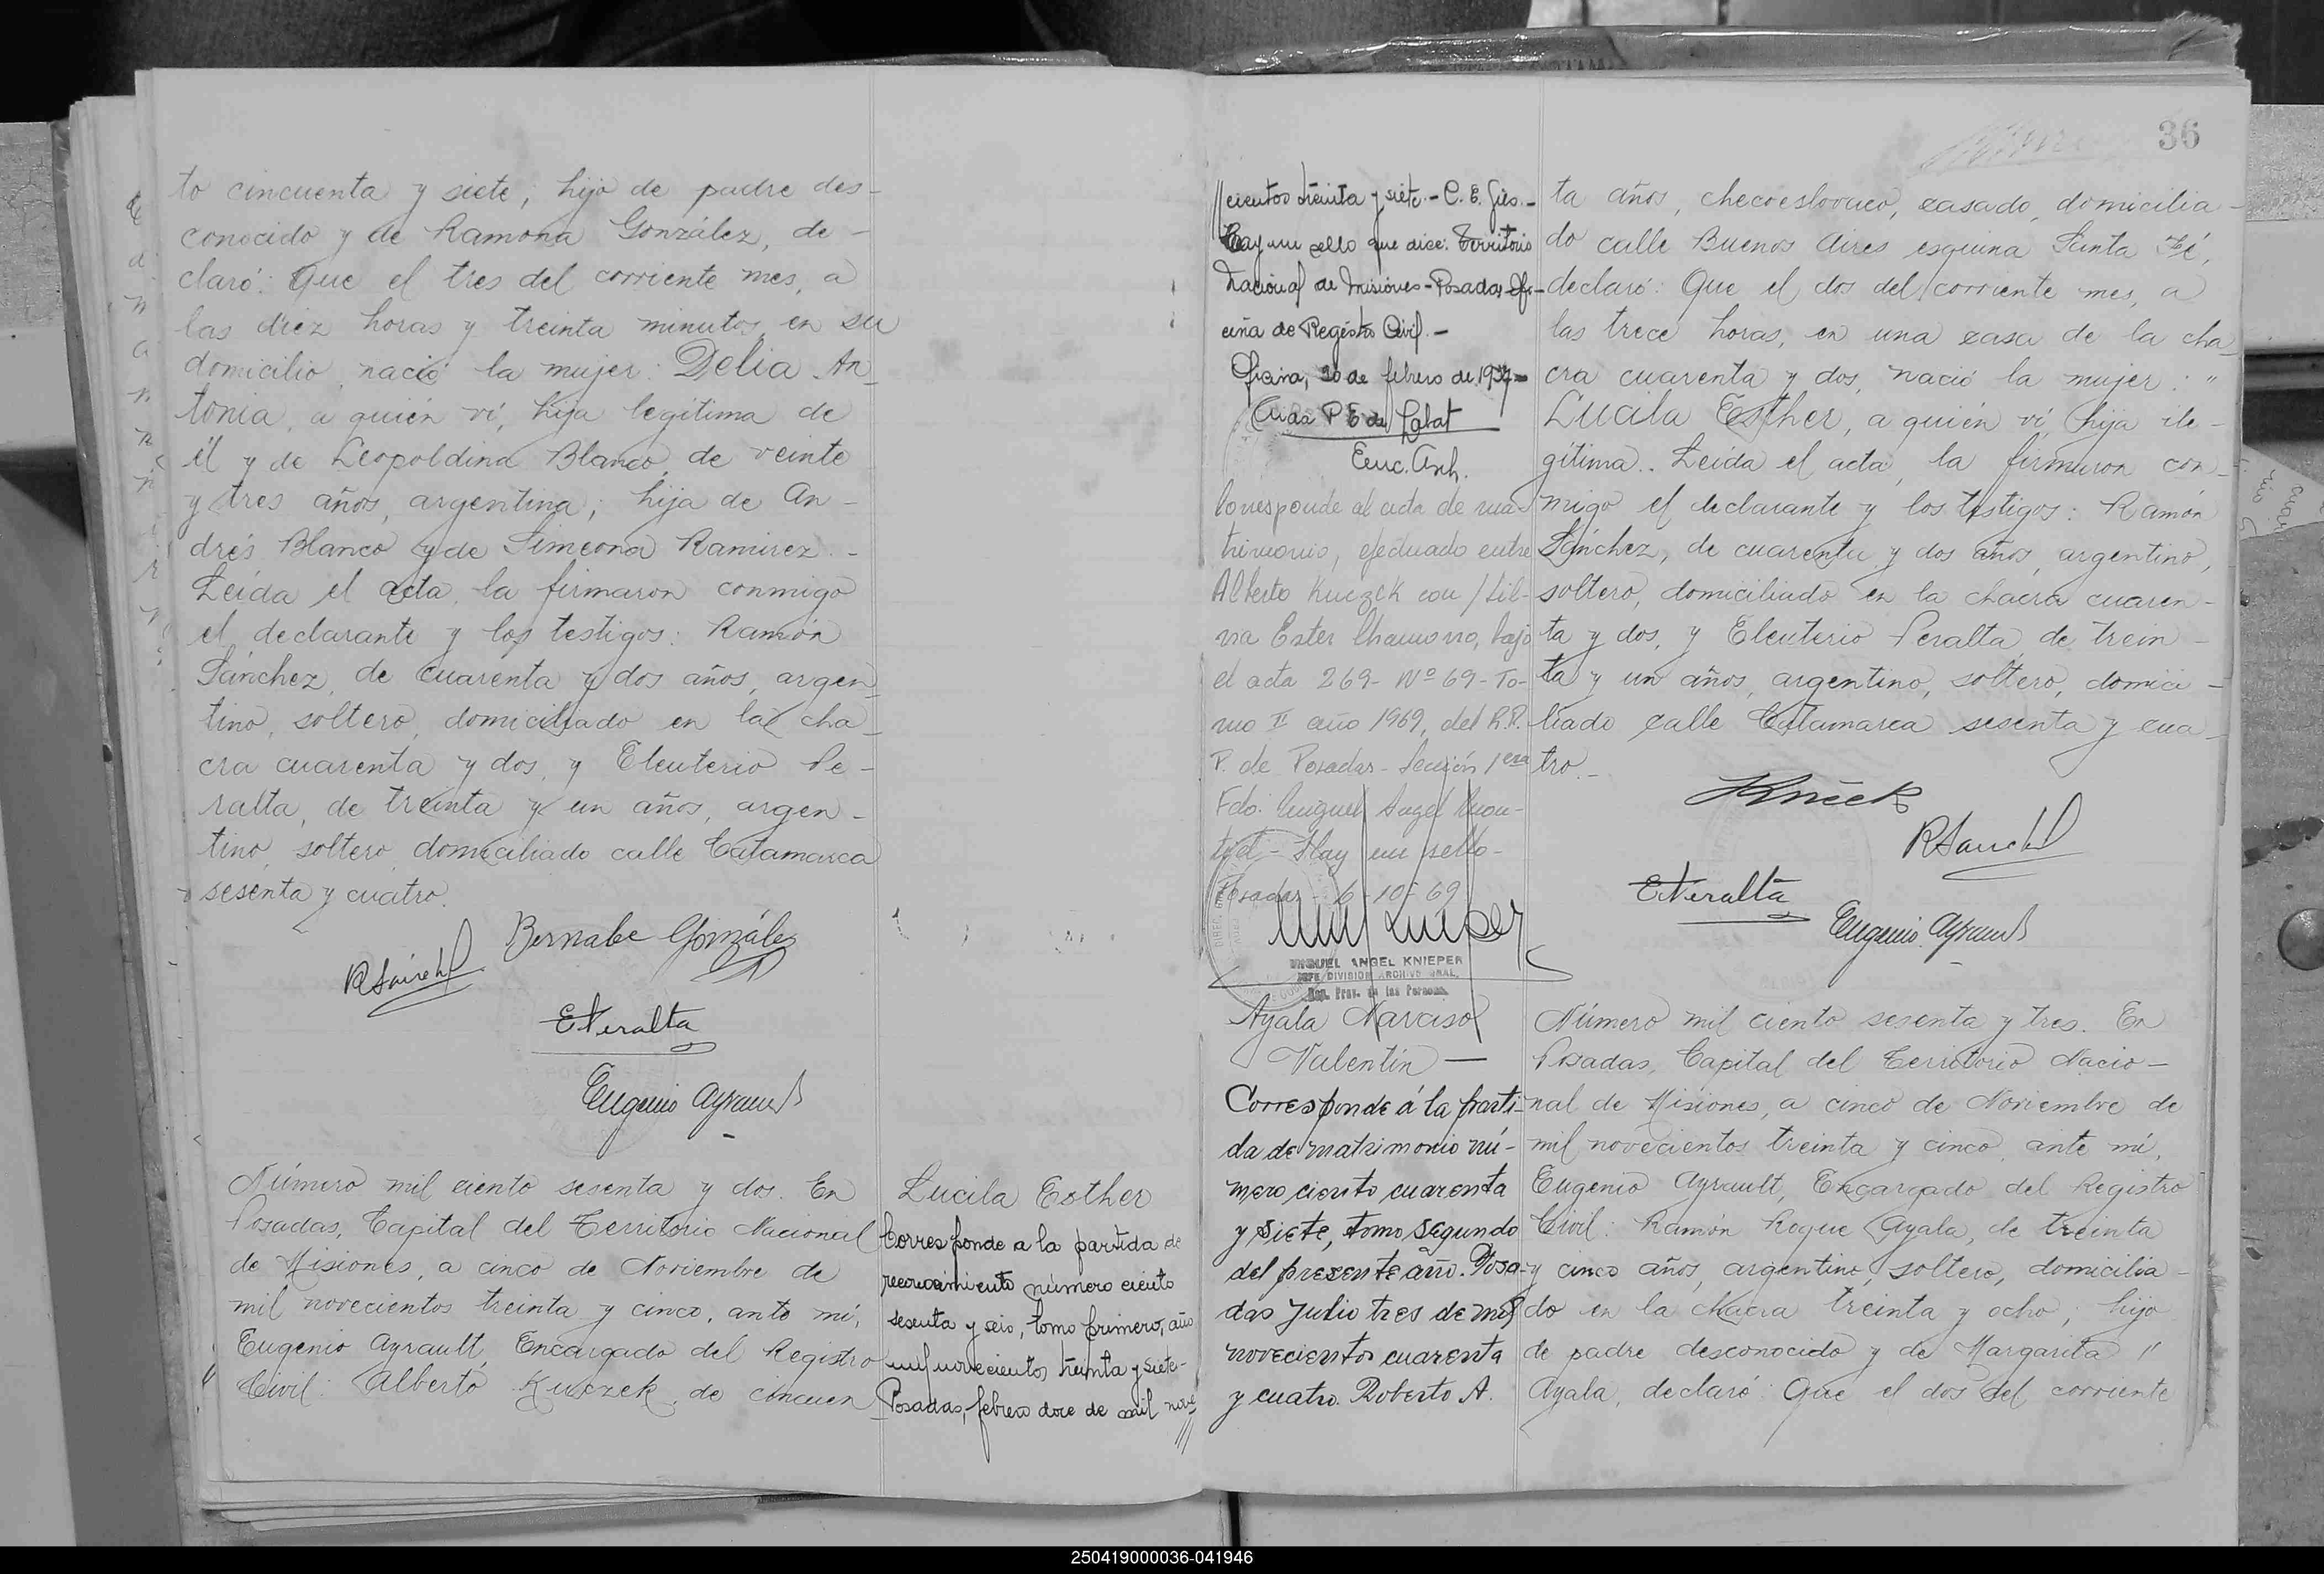 to cincuenta y siete, hijo de padre des-
conocido y de Ramona González, de-
claró: Que el tres del corriente mes, a
las diez horas y treinta minutos, en su
domicilio, nació la mujer: Delia An-
tonia, a quién ví, hija legítima de
él y de Leopoldina Blanco, de veinte
y tres años, argentina, hija de An-
drés Blanco y de Simeona Ramirez.-
Leída el acta, la firmaron conmigo
el declarante y los testigos: Ramón
Sánchez, de cuarenta y dos años, argen-
tino, soltero, domiciliado en la cha-
cra cuarenta y dos, y Eleuterio Pe-
ralta, de treinta y un años, argen-
tino, soltero, domiciliado calle Catamarca
sesenta y cuatro.
Bernabe González
RSánch
EPeralta
Eugenio Ayrault
Número mil ciento sesenta y dos. En
Posadas, Capital del Territorio Nacional
de Misiones, a cinco de Noviembre de
mil novecientos treinta y cinco, ante mí,
Eugenio Ayrault, Encargado del Registro
Civil: Alberto Kuczek, de cincuen
Lucila Esther
Corresponde a la partida de
reconocimiento número ciento
sesenta y seis, tomo primero, año
mil novecientos treinta y siete-
Posadas, febrero doce de mil nove
//cientos treinta y siete.- C. E.
Hay un sello que dice: Territorio
Nacional de Misiones-Posadas-Ofi-
cina de Registro Civil.-
Oficina, 20 de febrero de 1937-
Aida P E de Labat
Enc. Arch.
Corresponde al acta de ma-
trimonio, efectuado entre
Alberto Kuczek con /Lil-
via Ester Chamorro, bajo
el acta 269- Nº 69- To-
mo II año 1969, del R.P.
P. de Posadas- Sección 1era
Fdo: Miguel Angel
Hay un sello-
Posadas 6-10-69
MIGUEL ANGEL KNIEPER
JEFE DIVISION ARCHIVO GRAL.
Reg. Prov. de las Personas
Ayala Narciso
Valentín —
Corresponde á la parti-
da de matrimonio nú-
mero ciento cuarenta
y siete, tomo segundo
del presente año. Posa-
das Julio tres de mil
novecientos cuarenta
y cuatro. Roberto A.
36
ta años, checoeslovaco, casado, domicilia-
do calle Buenos Aires esquina Santa Fé,
declaró: Que el dos del corriente mes, a
las trece horas, en una casa de la cha-
cra cuarenta y dos, nació la mujer: "
Lucila Esther, a quién ví, hija ile-
gítima.. Leída el acta, la firmaron con-
migo el declarante y los testigos: Ramón
Sánchez, de cuarenta y dos años, argentino,
soltero, domiciliado en la chacra cuaren-
ta y dos, y Eleuterio Peralta, de trein-
ta y un años, argentino, soltero, domici-
liado calle Catamarca sesenta y cua-
tro.-
RSánch
EPeralta
Eugenio Ayrault
Número mil ciento sesenta y tres. En
Posadas, Capital del Territorio Nacio-
nal de Misiones, a cinco de Noviembre de
mil novecientos treinta y cinco, ante mí,
Eugenio Ayrault, Encargado del Registro
Civil: Ramón Roque Ayala, de treinta
y cinco años, argentino, soltero, domicilia-
do en la chacra treinta y ocho, hijo
de padre desconocido y de Margarita "
Ayala, declaró: Que el dos del corriente
250419000036-041946